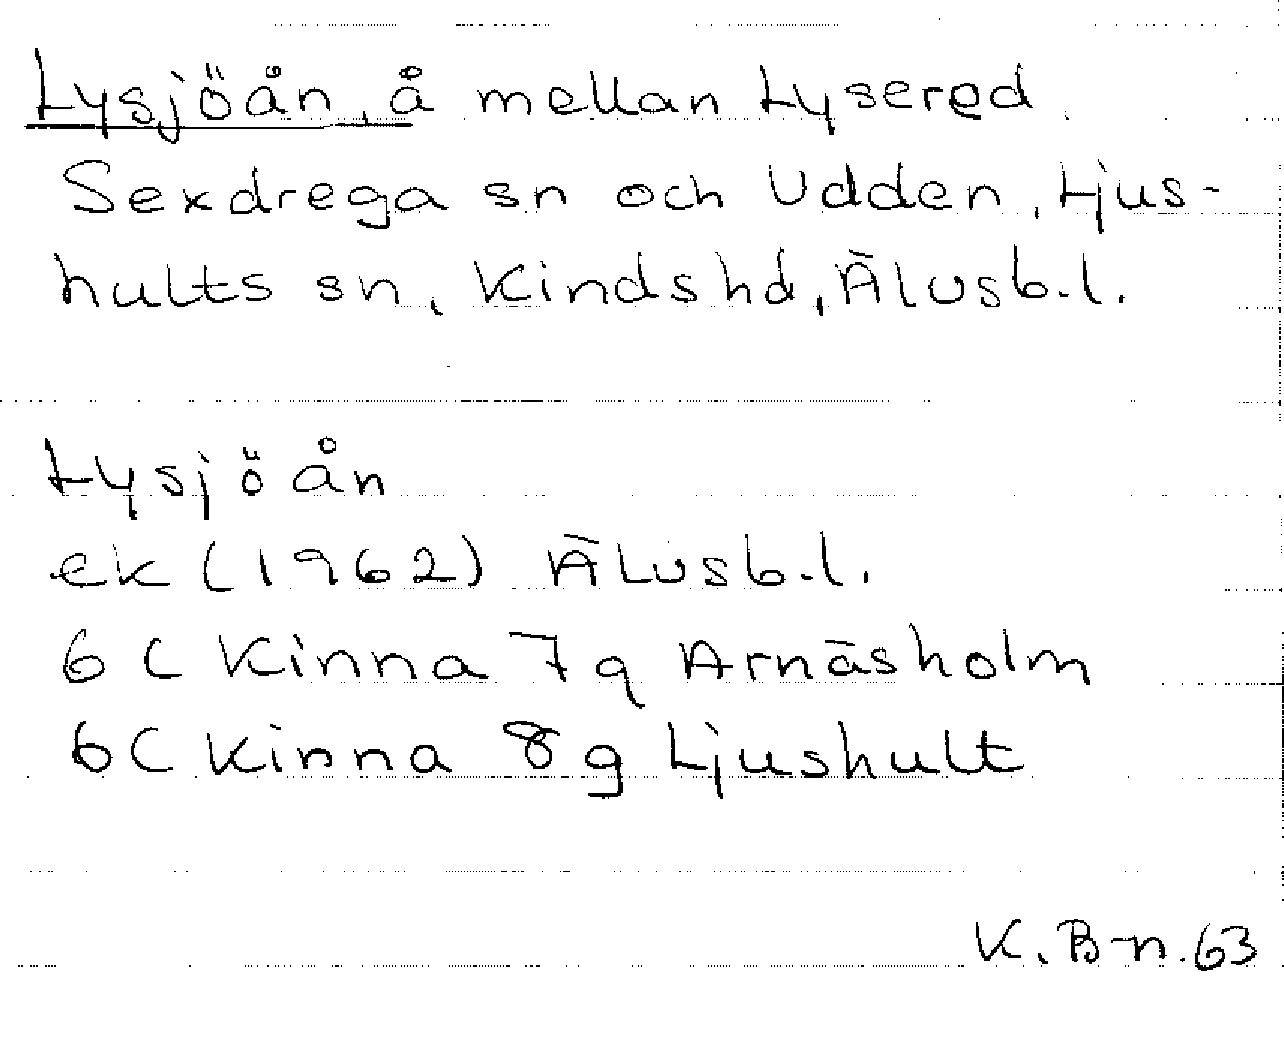 Lysjöån, å mellan Lysered,
Sexdrega sn och Udden, Ljus-
hults sn, Kinds hd, Älvsb.l.
Lysjöån
ek (1962) Älvsb.l.
6 C Kinna 7g Arnäsholm
6 C Kinna 8g Ljushult
K. B-n. 63